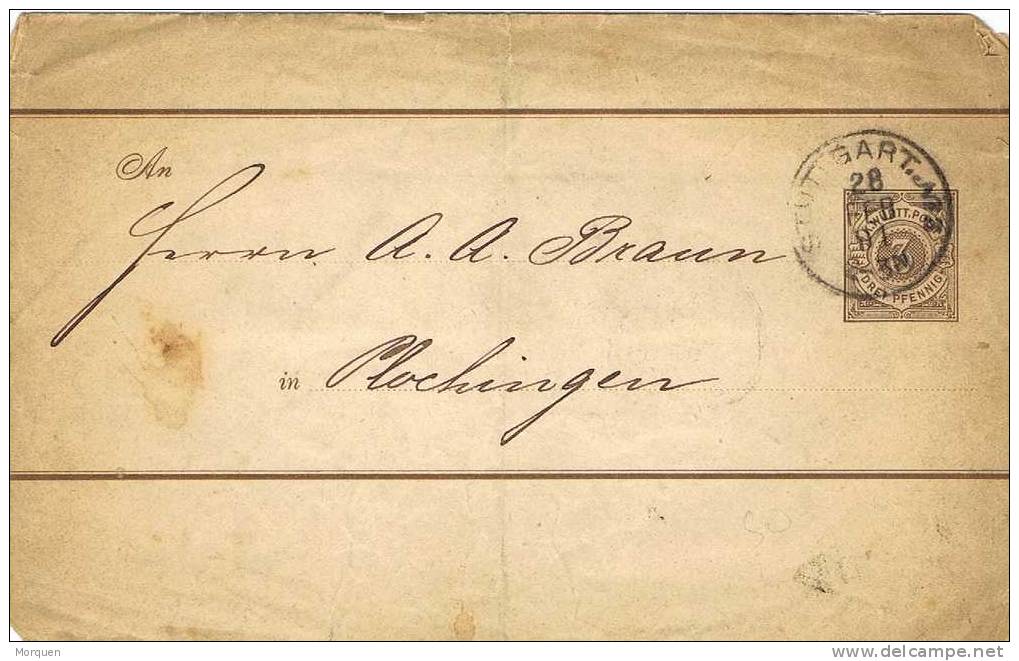 An
Herrn A. A. Braun
in Plochingen
STUTTGART
28
FEB
K. WÜRTT. POST
3
DREI PFENNIG
50
Morquen
delcampe.net